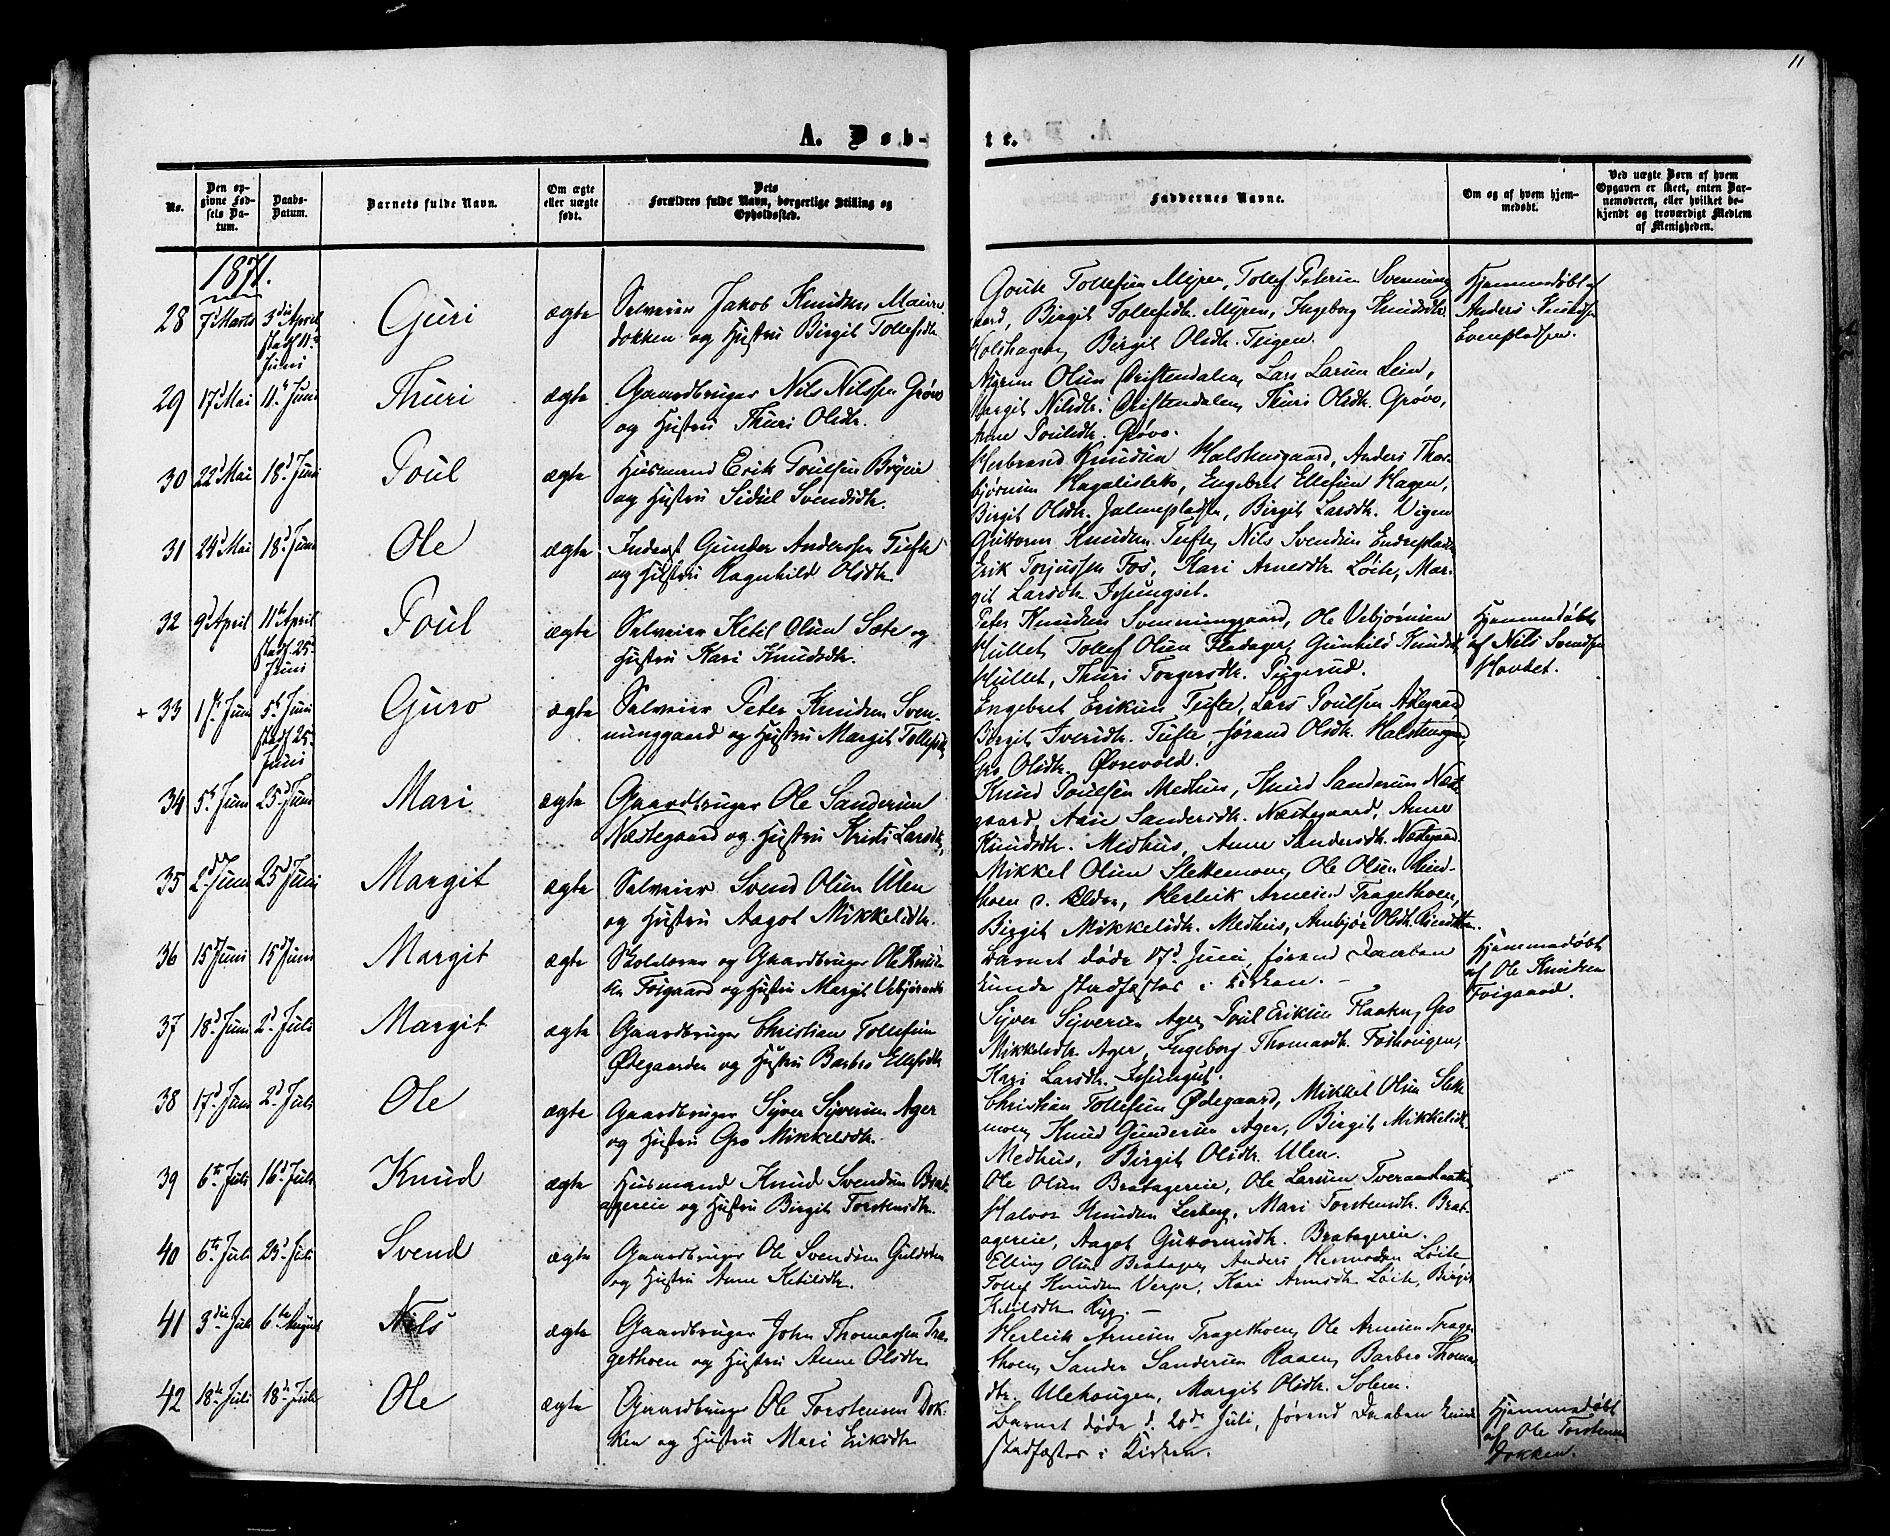 11
A. Døb-
te.
No.
Den op-
givne Fød-
sels Da-
tum.
Daabs-
Datum.
Barnets fulde Navn.
Om ægte
eller uægte
født.
Dets
Forældres fulde Navn, borgerlige Stilling og
Opholdssted.
Faddernes Navne.
Om og af hvem hjem-
medøbt.
Ved uægte Børn af hvem
Opgaven er skeet, enten Bar-
nemoderen, eller hvilket be-
kjendt og troværdigt Medlem
af Menigheden.
1871.
28 7d Marts 3die April stadf. 11te Juni Guri ægte
Selveier Jakob Knudsen
dokken og Hustru Birgit Tollefsdtr.
Tollefsen Myren, Tollef Petersen Svenning
gaard, Birgit Tollefsdtr. Myren, Ingeborg Knudsdtr.
Holshagen, Birgit Olsdtr. Teigen.
Hjemmedøbt af
Anders Knudsen
Evenpladsen.
29 17d Mai 11te Juni Thuri ægte
Gaardbruger Nils Nilssen Grøvo
og Hustru Thuri Olsdtr.
Olsen Driftendalen, Lars Larsen Lein,
Margit Nilsdtr. Driftendalen, Thuri Olsdtr. Grøvo,
Anne Poulsdtr. Grøvo.
30 22d Mai 18d Juni Poul ægte
Husmand Erik Poulsen
og Hustru Sidsel Svendsdtr.
Herbrand Knudsen Halstensgaard, Anders Thor-
bjørnsen Hagalislet, Engebret Ellefsen Hagen,
Birgit Olsdtr. Birgit Larsdtr. Vigen
31 29d Mai 18d Juni Ole ægte
Inderst Gunder Anderssen Tufte
og Hustru Ragnhild Olsdtr.
Guttorm Knudsen Tufte, Nils Svendsen
Erik Torjussen Fos, Kari Arnesdtr. Løite, Mar-
git Larsdtr. Isungset.
32 9d April 11te April stadf. 25d Juni Poul ægte
Selveier Ketil Olsen Sæte og
Hustru Kari Knudsdtr.
Peter Knudsen Svenninggaard, Ole Vebjørnsen
Hullet, Tollef Olsen Fladager, Gunhild Knudsdtr.
Hullet, Thuri Torgersdtr.
Hjemmedøbt
af Nils Svendsen
Hovdet.
+ 33 1ste Juni 5te Juni stadf. 25d Juni Guro ægte
Selveier Peter Knudsen Sven-
nunggaard og Hustru Margit Tollefsdtr.
Engebret Eriksen Tufte, Lars Poulsen
Birgit Iversdtr. Tufte, Jørand Olsdtr. Halstensgaard,
Gro Olsdtr. Øvrevold.
34 5te Juni 25d Juni Mari ægte
Gaardbruger Ole Sandersen
Næstegaard og Hustru Kristi Larsdtr.
Knud Poulsen Medhus, Knud Sandersen Næste-
gaard, Aase Sandersdtr. Næstegaard, Anne
Knudsdtr. Medhus, Anne Sandersdtr. Næstegaard.
35 2den Juni 25d Juni Margit ægte
Selveier Svend Olsen Ulen
og Hustru Aagot Mikkelsdtr.
Mikkel Olsen Slettemoen, Ole Olsen Rind-
hoen d. Ældre, Herleik Arnesen Tragethoen,
Birgit Mikkelsdtr. Medhus, Arnbjør Olsdtr. Rindhoen.
36 15d Juni 15d Juni Margit ægte
Skolelærer og Gaardbruger Ole Knud-
sen Foigaard og Hustru Margit Vebjørnsdtr.
Barnet døde 17d Juni, førend Daaben
kunde stadfæstes i Kirken. –
Hjemmedøbt
af Ole Knudsen
Foigaard.
37 18d Juni 2d Juli Margit ægte
Gaardbruger Christian Tollefsen
Ødegaarden og Hustru Barbro Ellefsdtr.
Syver Syversen Ager, Poul Eriksen Flaaten, Gro
Mikkelsdtr. Ager, Ingeborg Thomasdtr. Foshougen,
Kari Larsdtr. Isungset.
38 17d Juni 2d Juli Ole ægte
Gaardbruger Syver Syversen Ager
og Hustru Gro Mikkelsdtr.
Christian Tollefsen Ødegaard, Mikkel Olsen Slette-
moen, Knud Gundersen Ager, Birgit Mikkelsdtr.
Medhus, Birgit Olsdtr. Ulen.
39 6te Juli 16d Juli Knud ægte
Husmand Knud Svendsen Brat-
agereie og Hustru Birgit Torstensdtr.
Ole Olsen Bratagereie, Ole Larsen
Halvor Knudsen Lerberg, Mari Torstensdtr. Brat-
agereie, Aagot Guttormsdtr. Bratagereie.
40 6te Juli 23d Juli Svend ægte
Gaardbruger Ole Svendsen Gulds
og Hustru Anne Ketilsdtr.
Elling Olsen Bratager, Anders Hermodsen Løite
Tollef Knudsen Verpe, Kari Arnesdtr. Løite, Birgit
Ketilsdtr. Ryg. –
41 3die Juli 6te August Nils ægte
Gaardbruger John Thomassen Tra-
gethoen og Hustru Anne Olsdtr.
Herleik Arnesen Tragethoen, Ole Arnesen Traget-
hoen, Sander Sandersen Raaen, Barbro Thomas-
dtr. Ulehougen, Margit Olsdtr. Solem.
42 18de Juli 18de Juli Ole ægte
Gaardbruger Ole Torstensen Dok-
ken og Hustru Mari Eriksdtr.
Barnet døde d. 20de Juli, førend Daaben kunde
stadfæstes i Kirken.
Hjemmedøbt
af Ole Torstensen
Dokken.